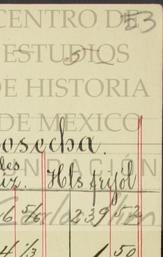 53
CENTRO DE
ESTUDIOS
DE HISTORIA
DE MEXICO
osecha.
les
iz. Hls frijol
FUNDACIÓN
16 5/6 239 52
4 1/3 1 50